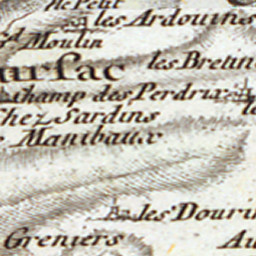 le Petit
les Ardouins
Gd. Moulin
arsac
les Breun
Champ des Perdrix
Chez Sardins
Manibaux
les Douri
Greniers
Au